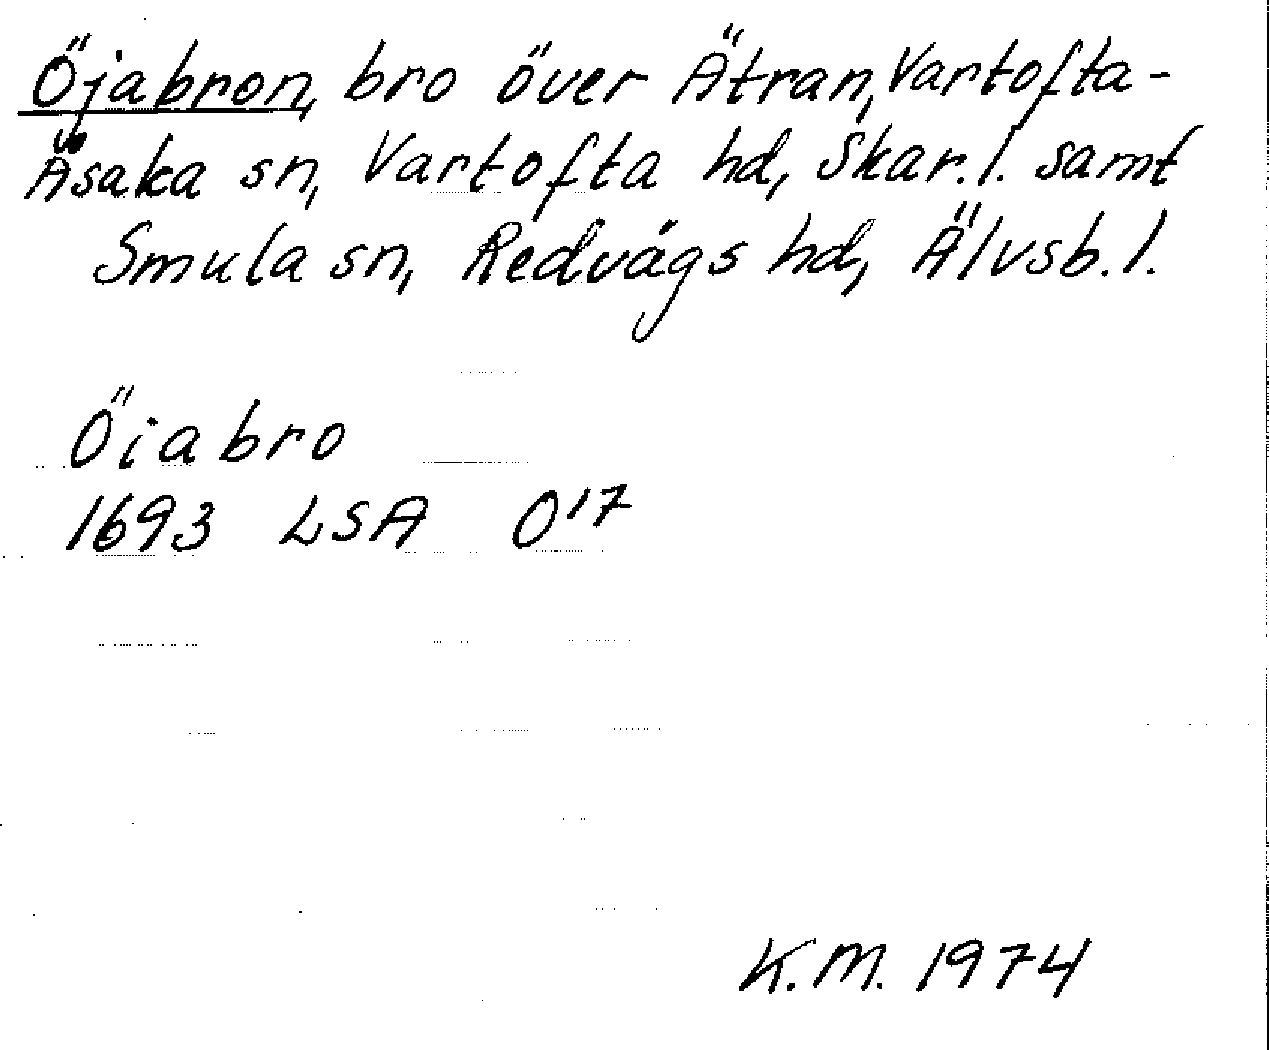 Öjabron, bro över Ätran, Vartofta-
Åsaka sn, Vartofta hd, Skar.l. samt
Smula sn, Redvägs hd, Älvsb.l.
Öiabro
1693 LSA O17
K.M. 1974